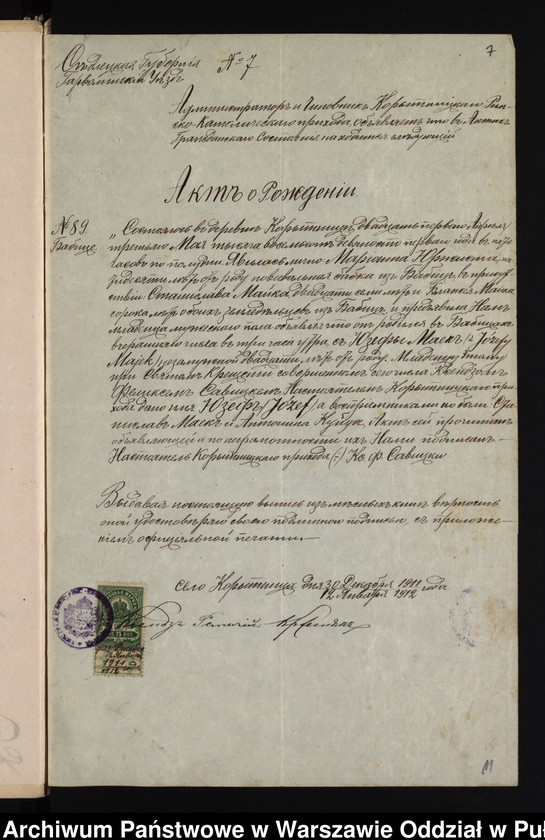 7
Сѣдлецкая Губернія
Гарволинскій Уѣздъ
№ 7
Администраторъ и Чиновникъ Корытницкаго Рим-
ско-Католическаго прихода, объявляетъ что въ Актахъ
Гражданскаго Состоянія находится слѣдующій
Актъ о Рожденіи.
№ 89.
Бабице.
„Состоялось въ деревнѣ Корытница, двадцать перваго Апрѣля
третьяго Мая тысяча восемьсотъ девяносто перваго года въ
часовъ по полудни. Явилась лично Маріанна
лѣтъ отъ роду повивальная бабка изъ Бабицъ, въ присут-
ствіи Станислава Майка, двадцати семи лѣтъ и Майка
сорока лѣтъ обоихъ земледѣльцевъ изъ Бабицъ, и предъявила Намъ
младенца мужескаго пола объявляя что онъ родился въ Бабицахъ
вчерашняго числа въ три часа утра, съ Юзефы Маекъ (z Józefy
Majek) незамужной двадцати лѣтъ отъ роду. Младенцу этому
при Святомъ Крещеніи совершенномъ сего числа Ксендзомъ
Феликсомъ Савицкимъ Настоятелемъ Корытницкаго при-
хода дано имя Юзефъ (Józef) а воспріемниками были Ста-
ниславъ Маекъ и Антонина Актъ сей прочитанъ
объявляющей а по неграмотности ихъ Нами подписанъ —
Настоятель Корытницкаго прихода (-) Кс. Ф. Савицки
Выдавая настоящую выпись изъ книгъ вѣрность
оной удостовѣряю своею подписью, съ приложе-
ніемъ официальной печати. —
село Корытница дня 30 Декабря 1911 года
12 Января 1912
Ксендзъ
11
Archiwum Państwowe w Warszawie Oddział w Pu